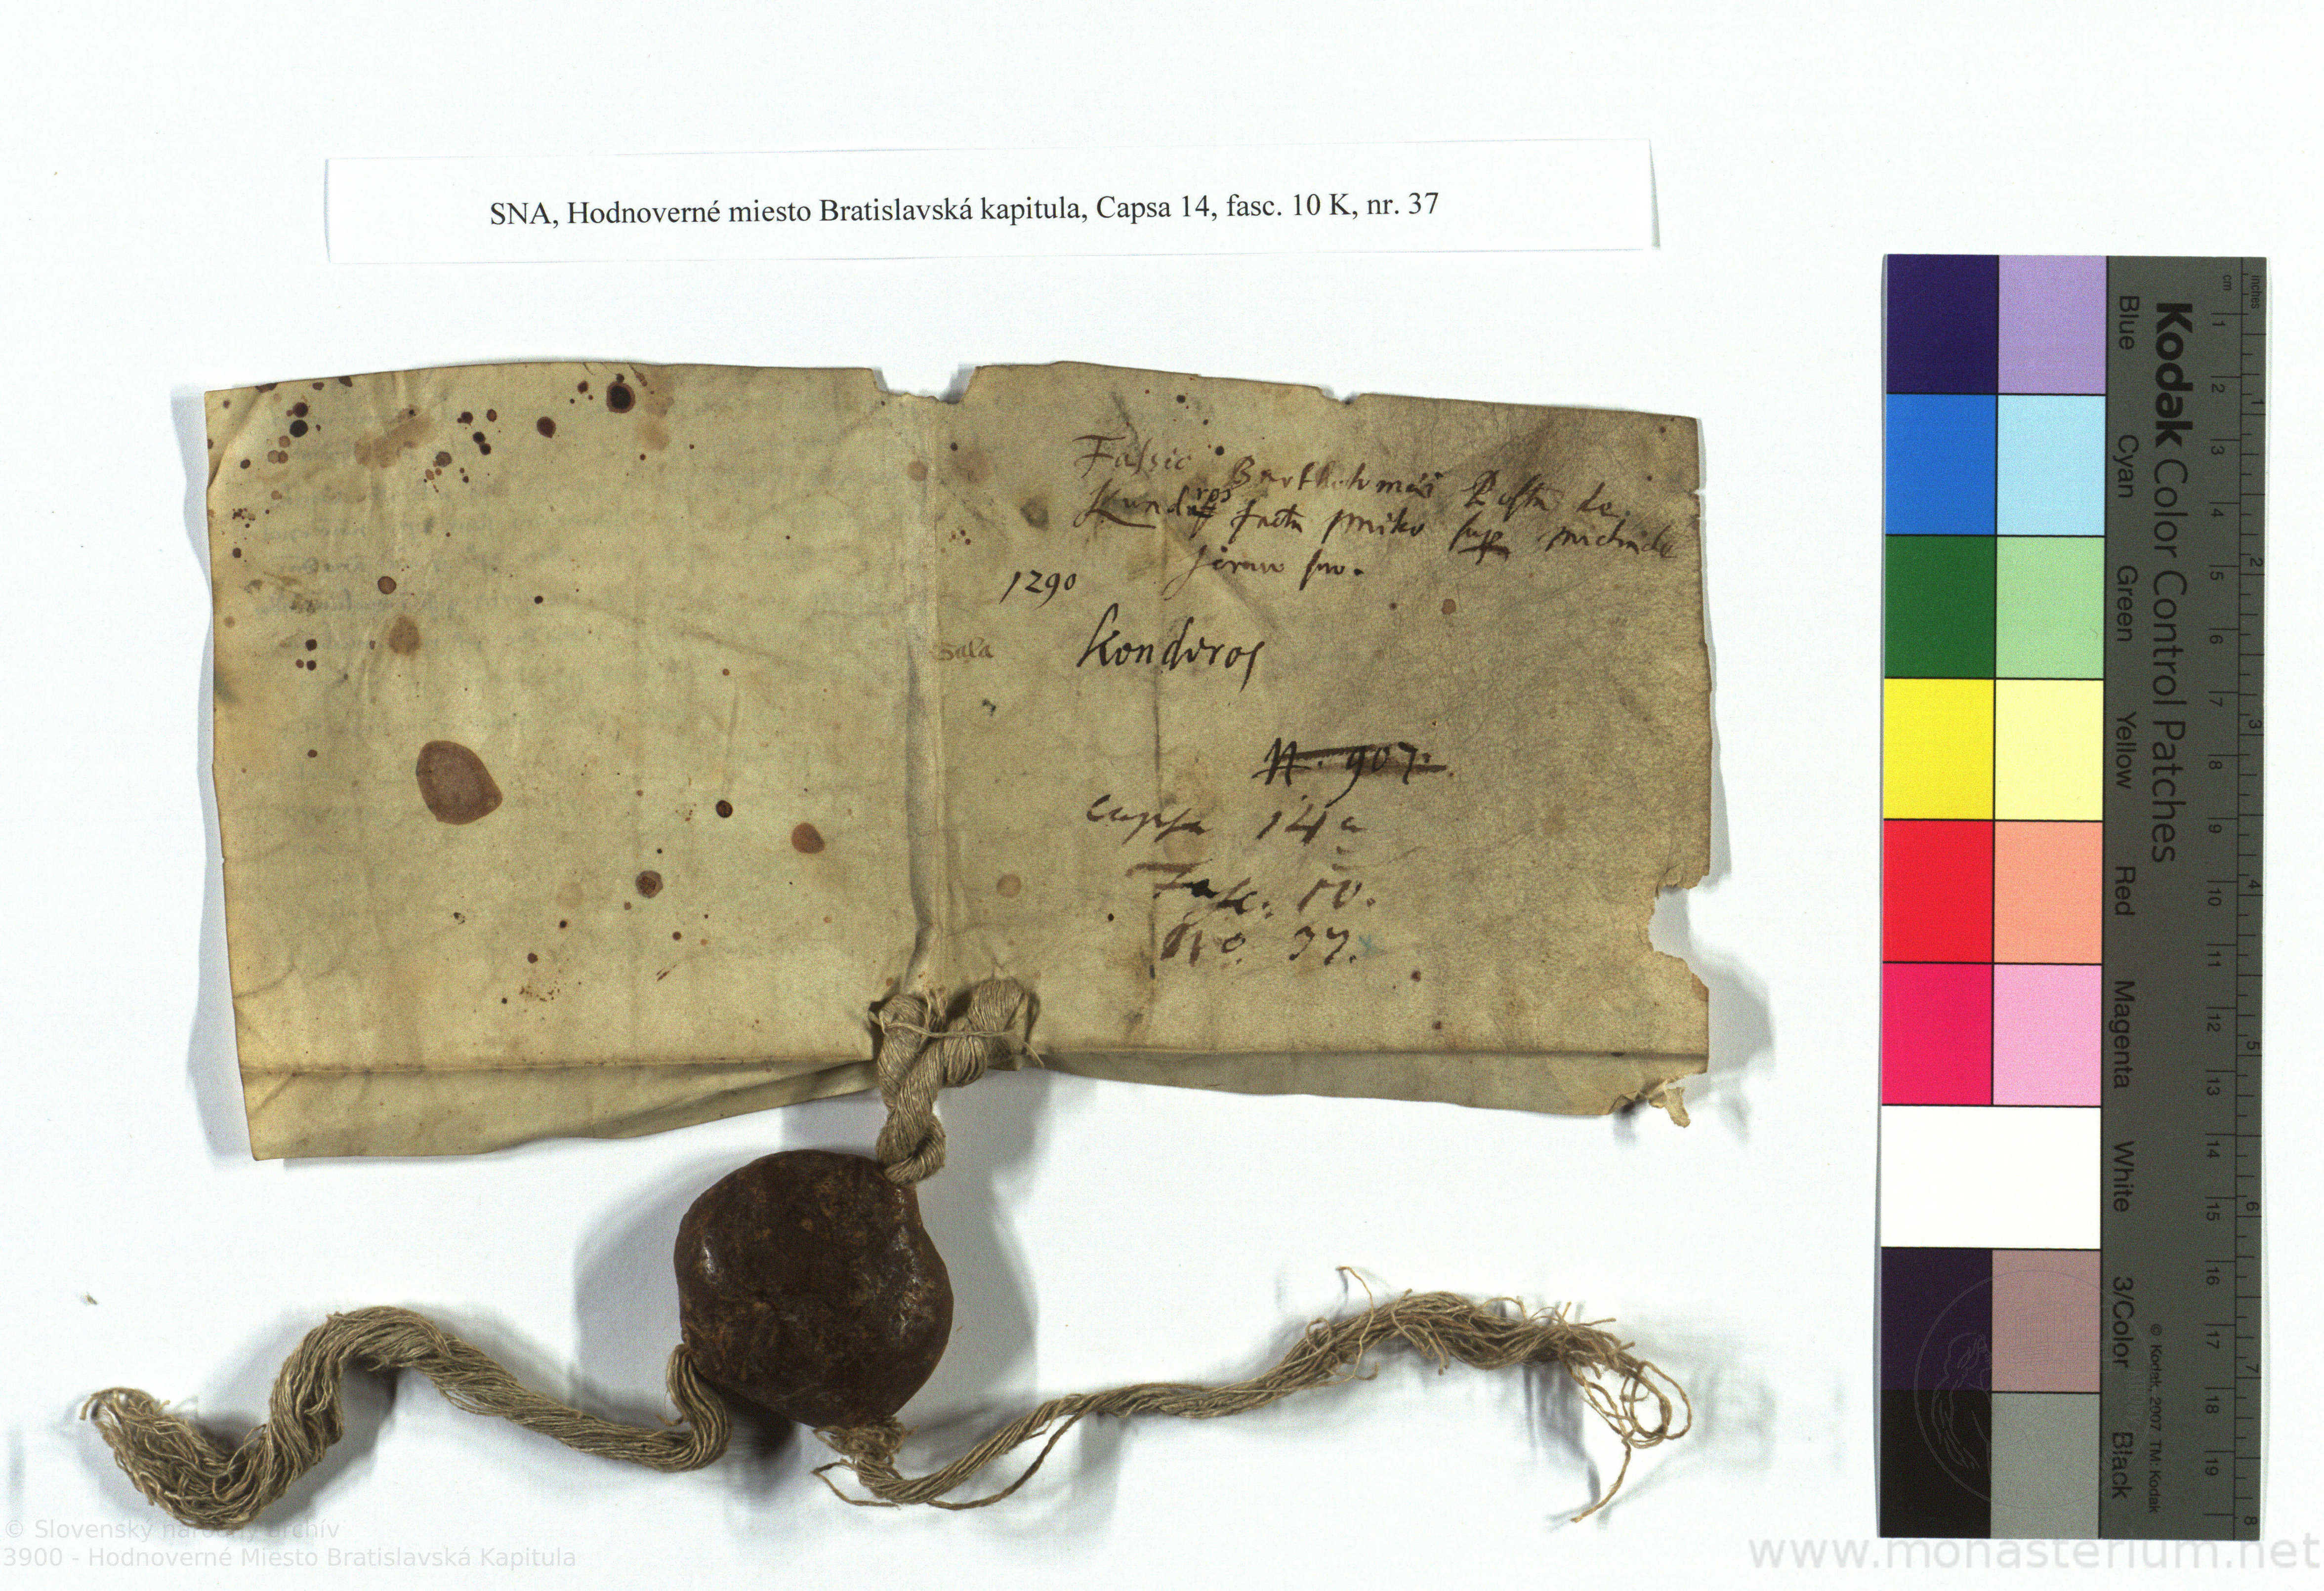 SNA, Hodnoverné miesto Bratislavská kapitula, Capsa 14, fasc. 10 K, nr. 37
Fassio Bartholomæi de
facta
1290
Sala
Kondoros
N. 907.
Capsa 14a
Fasc. 10.
No. 37.
inches
cm
Kodak Color Control Patches
Blue Cyan Green Yellow Red Magenta White 3/Color Black
© Kodak, 2007 TM: Kodak
1 2 3 4 5 6 7 8 9 10 11 12 13 14 15 16 17 18 19
1 2 3 4 5 6 7 8
© Slovenský národný archív
3900 - Hodnoverné Miesto Bratislavská Kapitula
www.monasterium.net